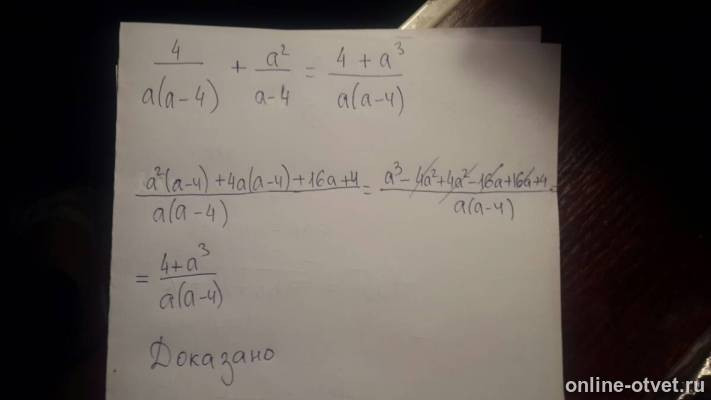 4/(a(a-4)) + a²/(a-4) = (4+a³)/(a(a-4))
(a²(a-4)+4a(a-4)+16a+4)/(a(a-4)) = (a³-4a²+4a²-16a+16a+4)/(a(a-4)) =
= (4+a³)/(a(a-4))
Доказано
online-otvet.ru